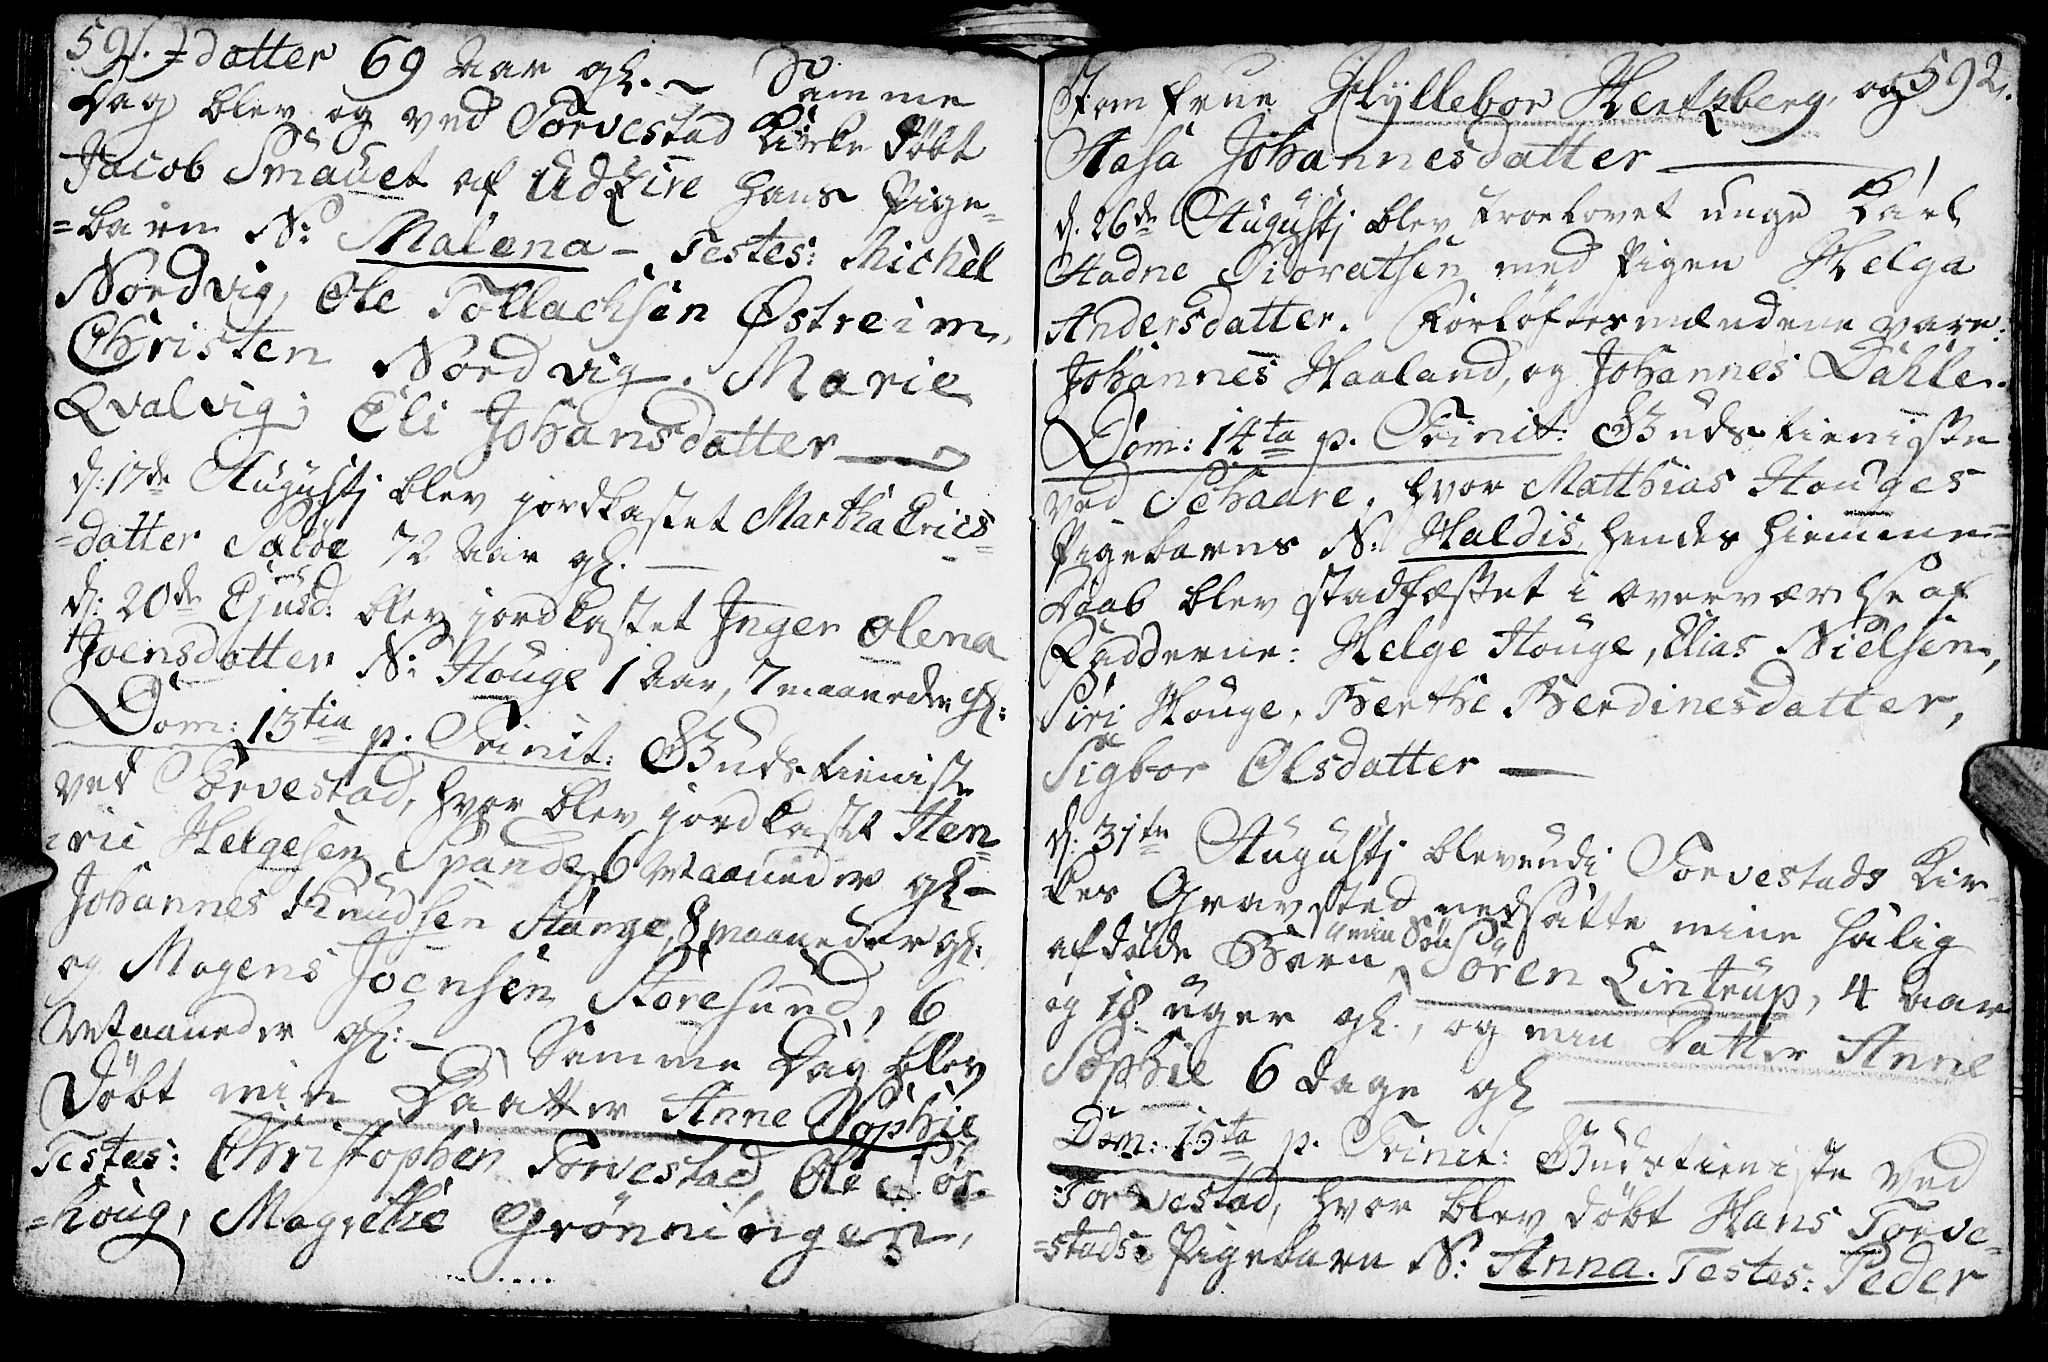 591. =datter 69 Aar gl. ~ Samme
Dag blev og ved Torvestad Kirke döbt
Jacob Smauet af Udzire hans Pige=
=barn N: Malena - Testes: Michel
Nordvig, Ole Tollachsen Østreim,
Christen Nordvig. Marie
Qvalvig; Eli Johansdatter
d: 17de Augustj blev jordkastet Martha Erics=
=datter 72 Aar gl.
d: 20de Ejusd: blev jordkastet Inger Olena
Joensdatter N: Houge 1 Aar, 7 maaneder gl:
Dom: 13tia p. Trinit: Gudstieniste
ved Torvestad, hvor blev jordkastet Hen=
=ric Helgesen Spande 6 Maaneder gl -
Johannes Knudsen Stange, 8 maaneder gl:
og Mogens Joensen Storesund, 6
Maaneder gl: - Samme Dag blev
döbt min Daatter Anne Sophie
Testes: Christopher Torvestad, Ole
=houg, Magrethe Grönningen,
Jomfrue Hyllebor Hertzberg, og 592.
Aasa Johannesdatter
d. 26de Augustj blev troelovet unge Karl
Aadne Sioratsen med Pigen Helga
Andersdatter. Forløftesmændene vare:
Johannes Haaland, og Johannes Dahle.
Dom: 14ta p. Trinit: Gudstieniste
ved Schaare, hvor Matthias Houges
Pigebarns N: Haldis, hendes hiemme=
Daab blev stadfæstet i overværelse af
Fadderne: Helge Houge, Elias Nielsen,
Siri Houge, Berthe Berdinesdatter,
Sigbor Olsdatter
d: 31te Augustj bleve udi Torvestads Kir=
kes Gravsted nedsatte mine salig
afdöde Börn, min Sön Sören Lintrup, 4 Aar
og 18 uger gl., og min Datter Anne
Sophie 6 Dage gl
Dom: 15ta p. Trinit: Gudstieniste ved
Torvestad, hvor blev döbt Hans Torve=
=stads Pigebarn N: Anna. Testes: Peder